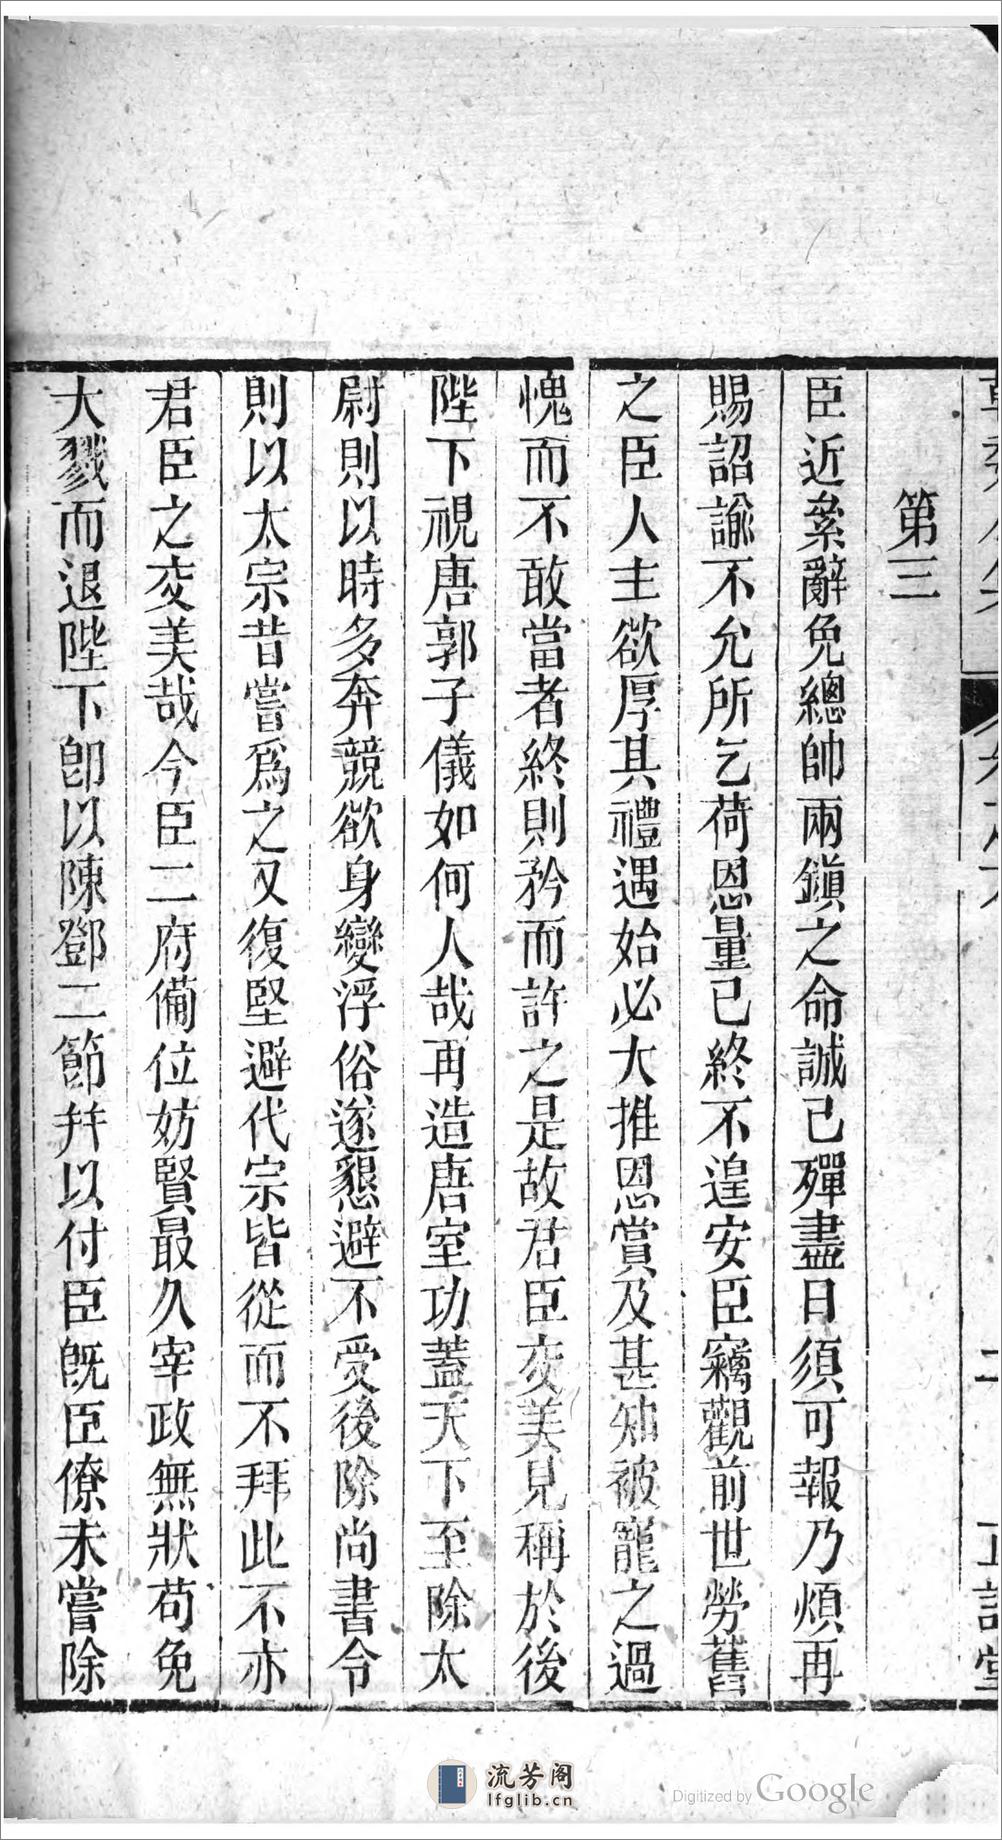 第三
臣近絫辭免總帥兩鎭之命誠已殫盡日須可報乃煩再
賜詔諭不允所乞荷恩量已終不遑安臣竊觀前世勞舊
之臣人主欲厚其禮遇始必大推恩賞及甚知被寵之過
愧而不敢當者終則矜而許之是故君臣交美見稱於後
陛下視唐郭子儀如何人哉再造唐室功蓋天下至除太
尉則以時多奔競欲身變浮俗遂懇避不受後除尚書令
則以太宗昔嘗爲之又復堅避代宗皆從而不拜此不亦
君臣之交美哉今臣二府備位妨賢最久宰政無狀苟免
大戮而退陛下卽以陳鄧二節幷以付臣旣臣僚未嘗除
流芳阁
lfglib.cn
Digitized by Google